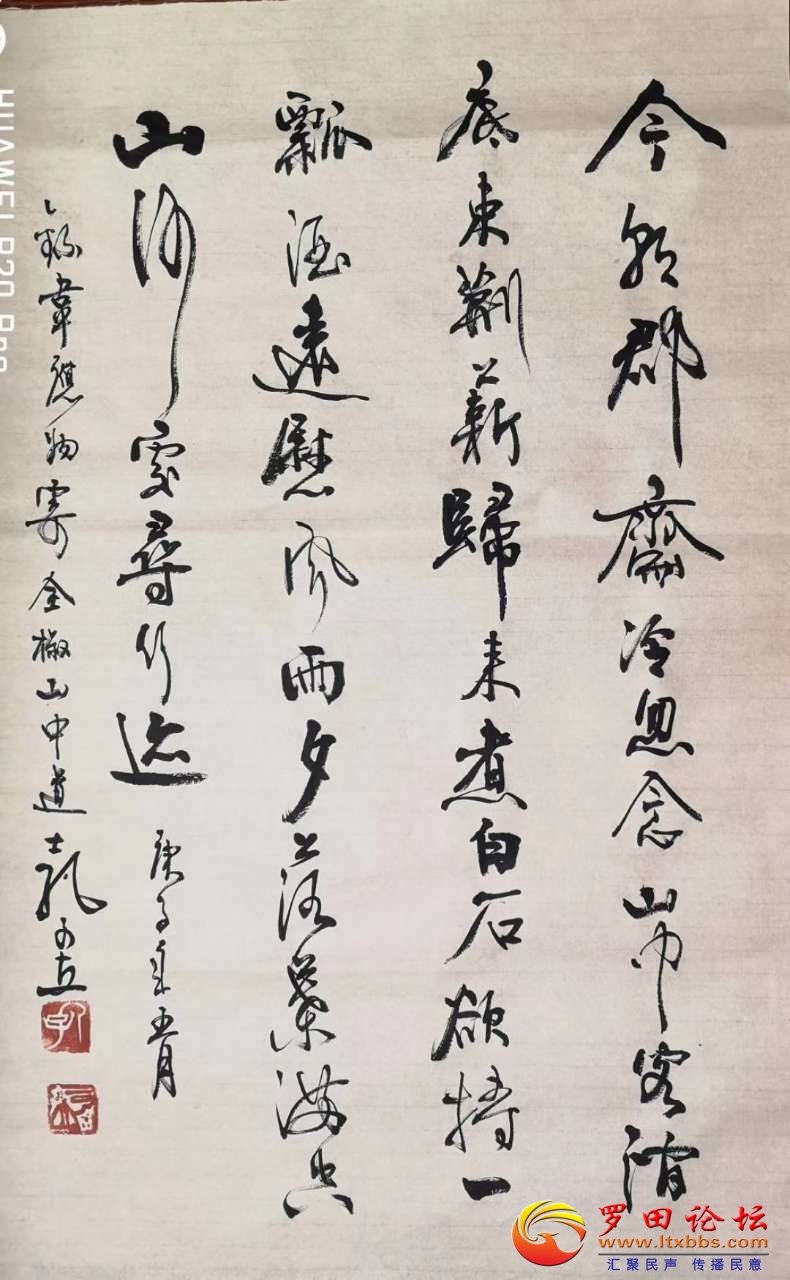 今朝郡齋冷忽念山中客澗
底束荊薪歸來煮白石欲持一
瓢酒遠慰風雨夕落葉滿空
山何處尋行迹
庚子年五月
錄韋應物寄全椒山中道士 孔
HUAWEI P20 Pro
罗田论坛
www.ltxbbs.com
汇聚民声 传播民意